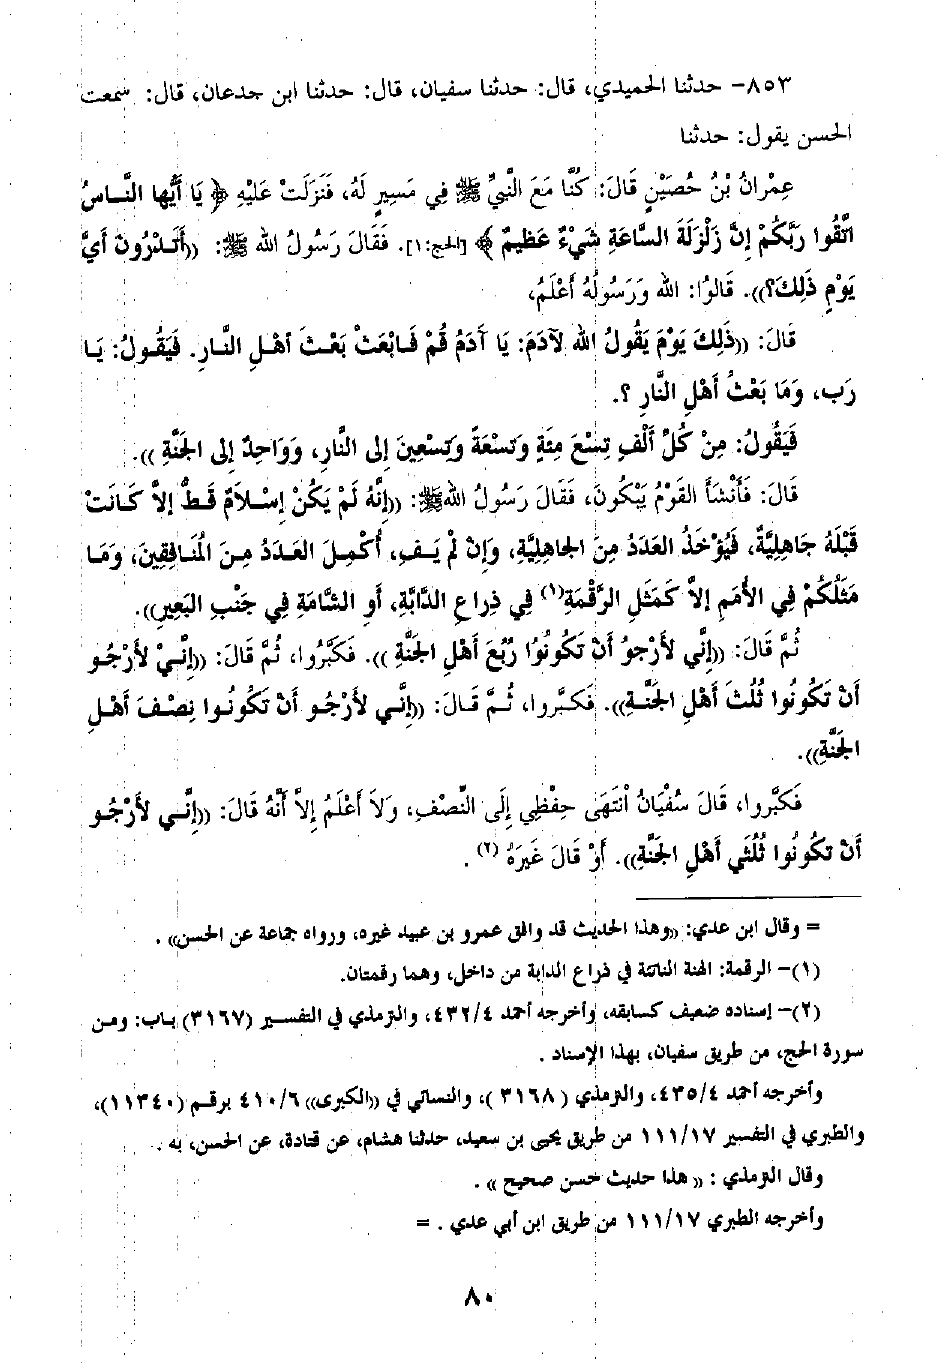 ٨٥٣- حدثنا الحميدي، قال: حدثنا سفيان، قال: حدثنا ابن جدعان، قال: سمعت
الحسن يقول: حدثنا
عِمْرانُ بْنُ حُصَيْنٍ قَالَ: كُنَّا مَعَ النَّبِيِّ ﷺ فِي مَسِيرٍ لَهُ، فَنَزَلَتْ عَلَيْهِ ﴿ يَا أَيُّها النَّاسُ
اتَّقُوا رَبَّكُمْ إِنَّ زَلْزَلَةَ السَّاعَةِ شَيْءٌ عَظِيمٌ ﴾ [الحج:١]. فَقَالَ رَسُولُ الله ﷺ: ((أَتَدْرُونَ أَيَّ
يَوْمٍ ذَلِكَ؟)). قَالُوا: الله وَرَسُولُهُ أَعْلَمُ،
قَالَ: ((ذَلِكَ يَوْمَ يَقُولُ الله لآدَمَ: يَا آدَمُ قُمْ فَابْعَثْ بَعْثَ أهْلِ النَّارِ. فَيَقُولُ: يَا
رَب، وَمَا بَعْثُ أَهْلِ النَّارِ ؟.
فَيَقُولُ: مِنْ كُلِّ أَلْفٍ تِسْعَ مِئَةٍ وَتِسْعَةً وَتِسْعِينَ إِلى النَّارِ، وَوَاحِدٌ إِلى الجَنَّةِ )).
قَالَ: فَأَنْشَأَ القَوْمُ يَبْكُونَ، فَقَالَ رَسُولُ اللهﷺ: ((إِنَّهُ لَمْ يَكُنْ إِسْلاَمٌ قَطُّ إلاَّ كَانَتْ
قَبْلَهُ جَاهِلِيَّةٌ، فَيُؤْخَذُ العَدَدُ مِنَ الجاهِلِيَّةِ، وَإِنْ لَمْ يَفِ، أُكْمِلَ العَدَدُ مِنَ الُمنَافِقِينَ، وَمَا
مَثَلُكُمْ فِي الأُمَمِ إِلاَّ كَمَثَلِ الرَّقْمَةِ(١) فِي ذِراعِ الدَّابَّةِ، أَوِ الشَّامَةِ فِي جَنْبِ البَعِيرِ)).
ثُمَّ قَالَ: ((إِنِّي لأَرْجُو أَنْ تَكُونُوا رُبُعَ أَهْلِ الجَنَّةِ )). فَكَبَّرُوا، ثُمَّ قَالَ: ((إِنِّيْ لأَرْجُو
أَنْ تَكُونُوا ثُلُثَ أَهْلِ الجَنَّةِ)). فَكَبَّروا، ثُمَّ قَالَ: ((إنَّي لأَرْجُو أَنْ تَكُونُوا نِصْفَ أَهْلِ
الجَنَّةِ)).
فَكَبَّروا، قَالَ سُفْيَانُ انْتَهَى حِفْظِي إِلَى النِّصْفِ، وَلاَ أَعْلَمُ إِلاَّ أَنَّهُ قَالَ: ((إِنِّي لأَرْجُو
أَنْ تَكُونُوا ثُلُثَي أَهْلِ الجَنَّةِ)). أَوْ قَالَ غَيْرَهُ (٢) .
= وقال ابن عدي: ((وهذا الحديث قد وافق عمرو بن عبيد غيره، ورواه جماعة عن الحسن)) .
(١)- الرقمة: الهنة الناتئة في ذراع الدابة من داخل، وهما رقمتان.
(٢)- إسناده ضعيف كسابقه، وأخرجه أحمد ٤/٤٣٢، والترمذي في التفسير (٣١٦٧) باب: ومن
سورة الحج، من طريق سفيان، بهذا الإسناد .
وأخرجه أحمد ٤/٤٣٥، والترمذي ( ٣١٦٨ )، والنسائي في ((الكبرى)) ٦/٤١٠ برقم (١١٣٤٠)،
والطبري في التفسير ١٧/١١١ من طريق يحيى بن سعيد، حدثنا هشام، عن قتادة، عن الحسن، به .
وقال الترمذي : (( هذا حديث حسن صحيح )) .
وأخرجه الطبري ١٧/١١١ من طريق ابن أبي عدي . =
٨٠